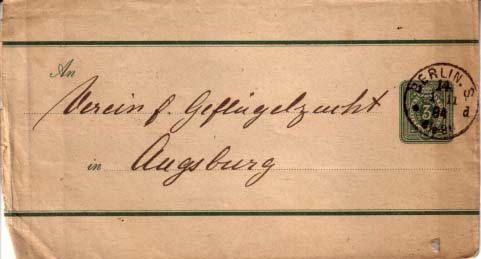 BERLIN. S.
14
11
84
d
An
Verein f. Geflügelzucht
3
in Augsburg